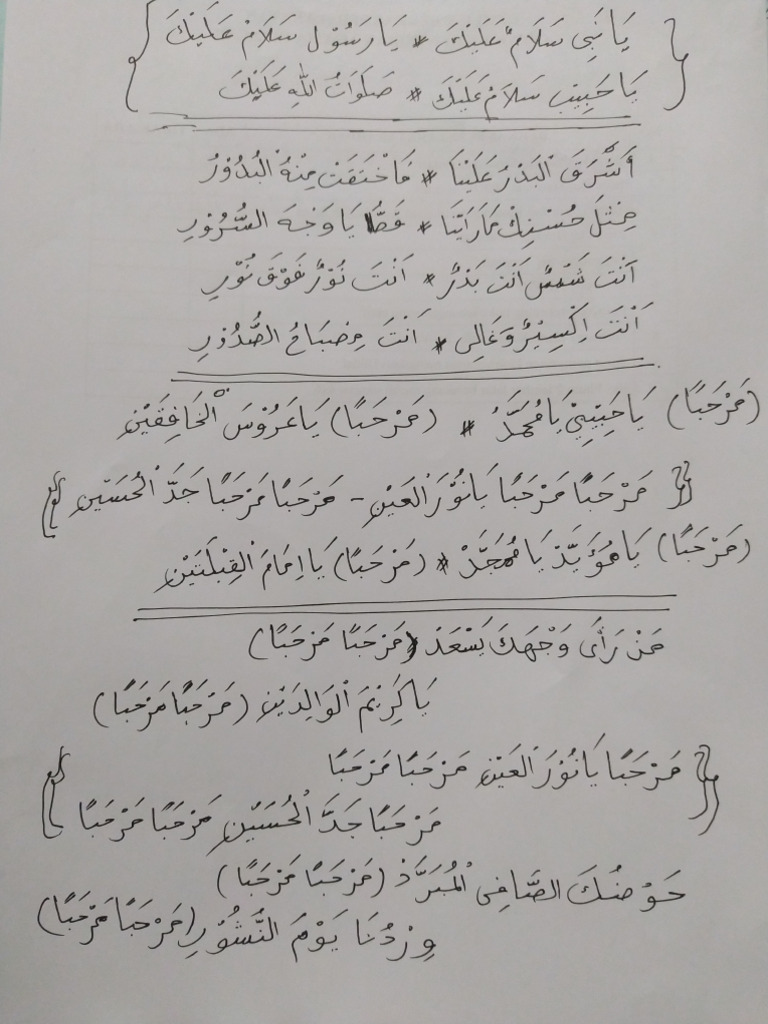 يَا نَبِي سَلَامْ عَلَيْكَ * يَا رَسُوْل سَلَامْ عَلَيْكَ
يَا حَبِيْب سَلَامْ عَلَيْكَ * صَلَوَاتُ اللهِ عَلَيْكَ
أَشْرَقَ الْبَدْرُ عَلَيْنَا * فَاخْتَفَتْ مِنْهُ الْبُدُوْرُ
مِثْلَ حُسْنِكْ مَا رَأَيْنَا * قَطُّ يَا وَجْهَ السُّرُوْرِ
اَنْتَ شَمْسٌ اَنْتَ بَدْرٌ * اَنْتَ نُوْرٌ فَوْقَ نُوْرٍ
اَنْتَ اِكْسِيْرٌ وَغَالِى * اَنْتَ مِصْبَاحُ الصُّدُوْرِ
(مَرْحَبًا) يَا حَبِيْبِيْ يَا مُحَمَّدُ * (مَرْحَبًا) يَا عَرُوْسَ الْخَافِقَيْنِ
{{ مَرْحَبًا مَرْحَبًا يَا نُوْرَ الْعَيْنِ - مَرْحَبًا مَرْحَبًا جَدَّ الْحُسَيْنِ }}
(مَرْحَبًا) يَا مُؤَيَّدْ يَا مُمَجَّدْ * (مَرْحَبًا) يَا اِمَامَ الْقِبْلَتَيْنِ
مَنْ رَأَى وَجْهَكَ يَسْعَدْ (مَرْحَبًا مَرْحَبًا)
يَا كَرِيْمَ الْوَالِدَيْنِ (مَرْحَبًا مَرْحَبًا)
مَرْحَبًا يَا نُوْرَ الْعَيْنِ مَرْحَبًا مَرْحَبًا
مَرْحَبًا جَدَّ الْحُسَيْنِ مَرْحَبًا مَرْحَبًا
حَوْضُكَ الصَّافِى الْمُبَرَّدْ (مَرْحَبًا مَرْحَبًا)
وِرْدُنَا يَوْمَ النُّشُوْرِ (مَرْحَبًا مَرْحَبًا)